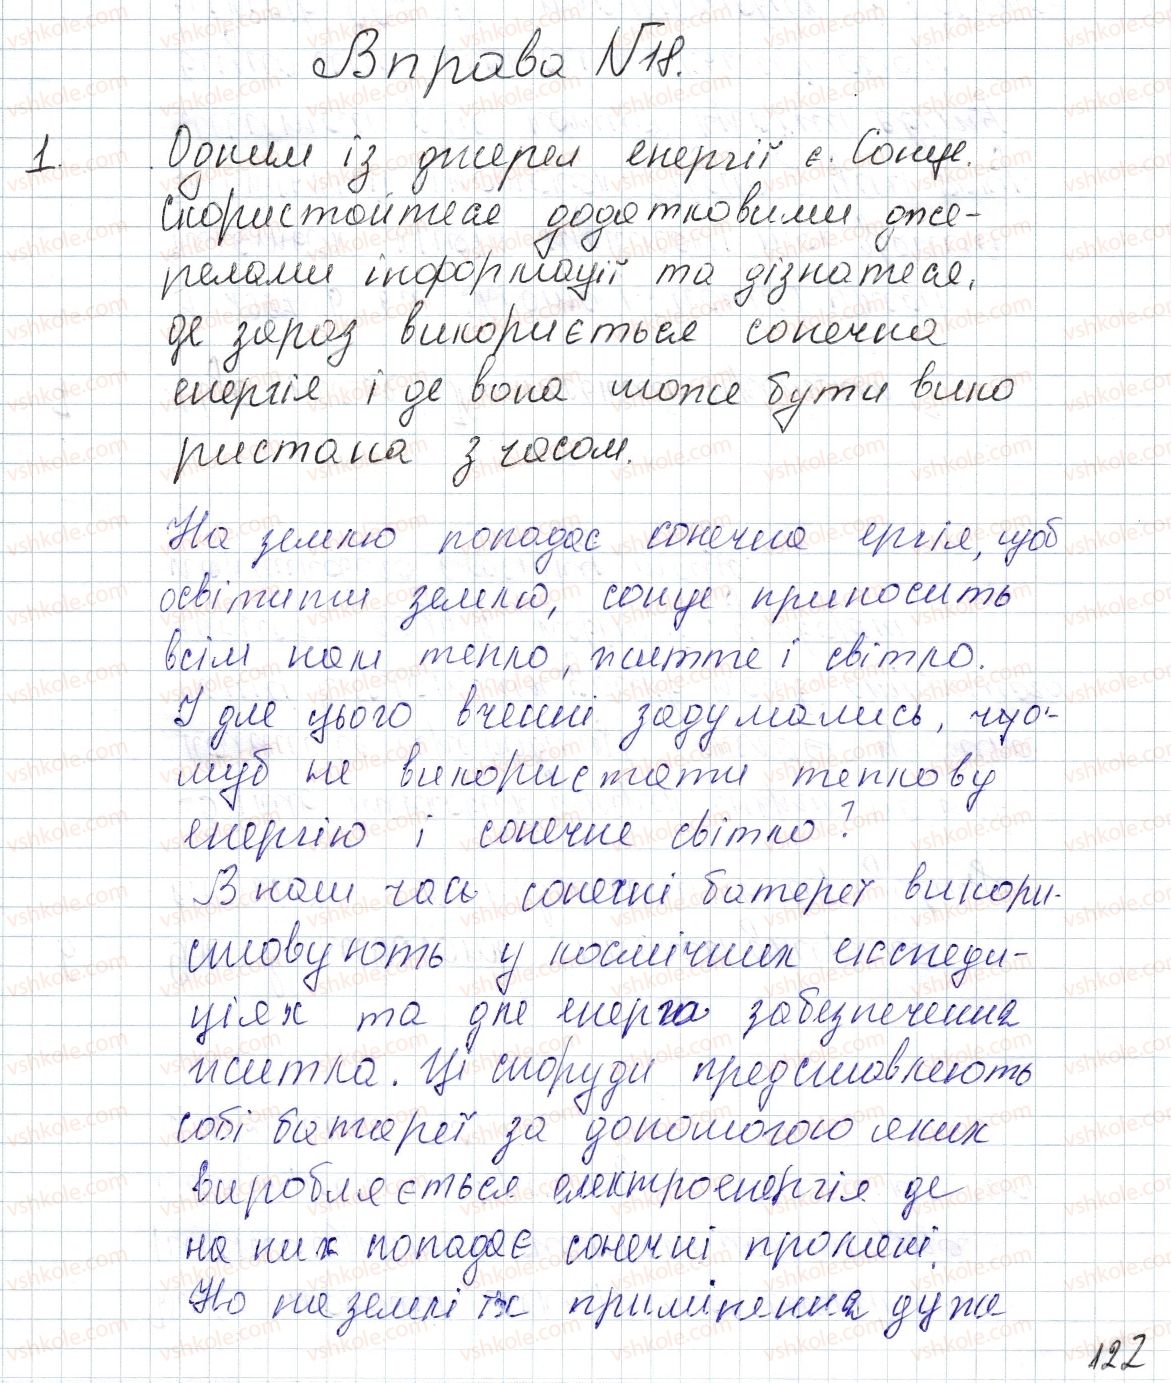 Вправа №18.
1. Одним із джерел енергії є Сонце.
Скористайтеся додатковими дже-
релами інформації та дізнатеся,
де зараз використється сонечна
енергія і де вона може бути вико
ристана з часом.
На землю попадає сонечна ергія, щоб
освітити землю, сонце приносить
всім нам тепло, життя і світло.
І для цього вченні задумались, чуо-
муб не використати теплову
енергію і сонечне світло?
В наш час сонечні батереї викори-
стовують у космічних експеди-
ціях та для енерго забезпечення
житла. Ці споруди представляють
собі батереї за допомогою яких
виробляється електроенергія де
на них попадає сонечні промені.
Но на землі їх приміненна дуже
122